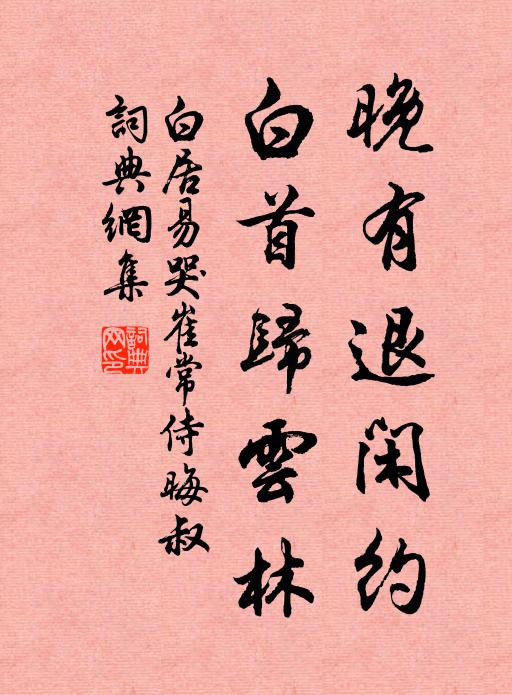 晚有退閑約
白首歸雲林
白居易哭崔常侍晦叔
詞典網集
詞典網印